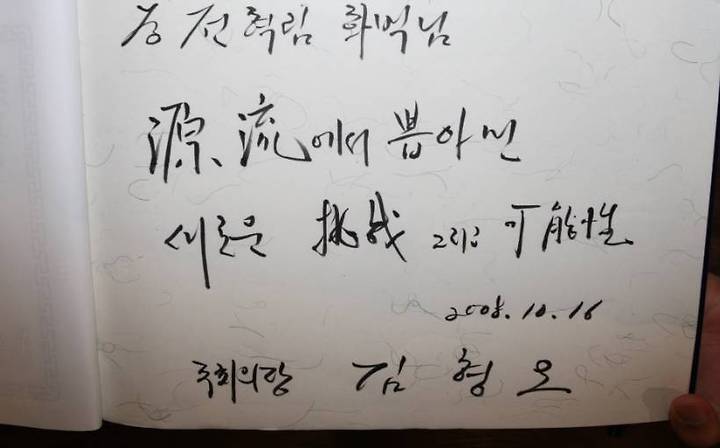 전혁림 화백님
源、流에서 뽑아낸
새로운 挑战 그리고 可能性
2008.10.16
국회의장 김 형 오